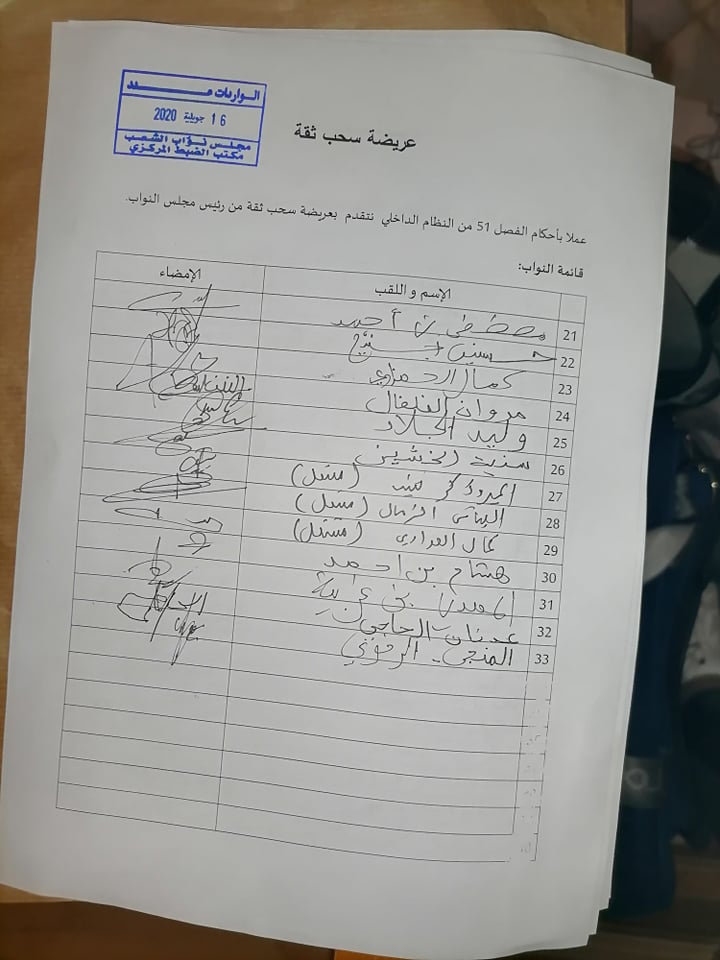 الواردات عـــدد
16 جويلية 2020
مجلس نواب الشعب
مكتب الضبط المركزي
عريضة سحب ثقة
عملا بأحكام الفصل 51 من النظام الداخلي نتقدم بعريضة سحب ثقة من رئيس مجلس النواب.
قائمة النواب:
الإسم و اللقب الإمضاء
21 مصطفى بن أحمد
22 حسونة
23 كمال الحمزاوي
24 مروان الفلفال
25 وليد الجلاد
26 سنية الخشين
27 المبروك (مستقل)
28 (مستقل)
29 كمال (مستقل)
30 هشام بن احمد
31
32 عدنان الحاجي
33 المنجي الرحوي